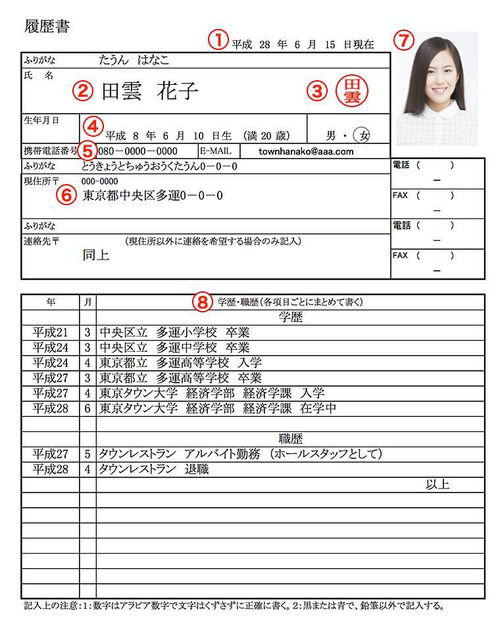 履歴書
① 平成 28 年 6 月 15 日現在
⑦
ふりがな たうん はなこ
氏 名
② 田雲 花子
③ 田雲
生年月日
④ 平成 8 年 6 月 10 日生 (満 20 歳) 男 ・ 女
携帯電話番号 ⑤ 080-0000-0000 E-MAIL townhanako@aaa.com
ふりがな とうきょうとちゅうおうくたうん0-0-0
電話 ( )
－
現住所〒 000-0000
⑥ 東京都中央区多運0-0-0
FAX ( )
－
ふりがな
電話 ( )
－
連絡先〒 (現住所以外に連絡を希望する場合のみ記入)
同上
FAX ( )
－
年 月 ⑧ 学歴・職歴(各項目ごとにまとめて書く)
学歴
平成21 3 中央区立 多運小学校 卒業
平成24 3 中央区立 多運中学校 卒業
平成24 4 東京都立 多運高等学校 入学
平成27 3 東京都立 多運高等学校 卒業
平成27 4 東京タウン大学 経済学部 経済学課 入学
平成28 6 東京タウン大学 経済学部 経済学課 在学中
職歴
平成27 5 タウンレストラン アルバイト勤務 (ホールスタッフとして)
平成28 4 タウンレストラン 退職
以上
記入上の注意:1:数字はアラビア数字で文字はくずさずに正確に書く。2:黒または青で、鉛筆以外で記入する。